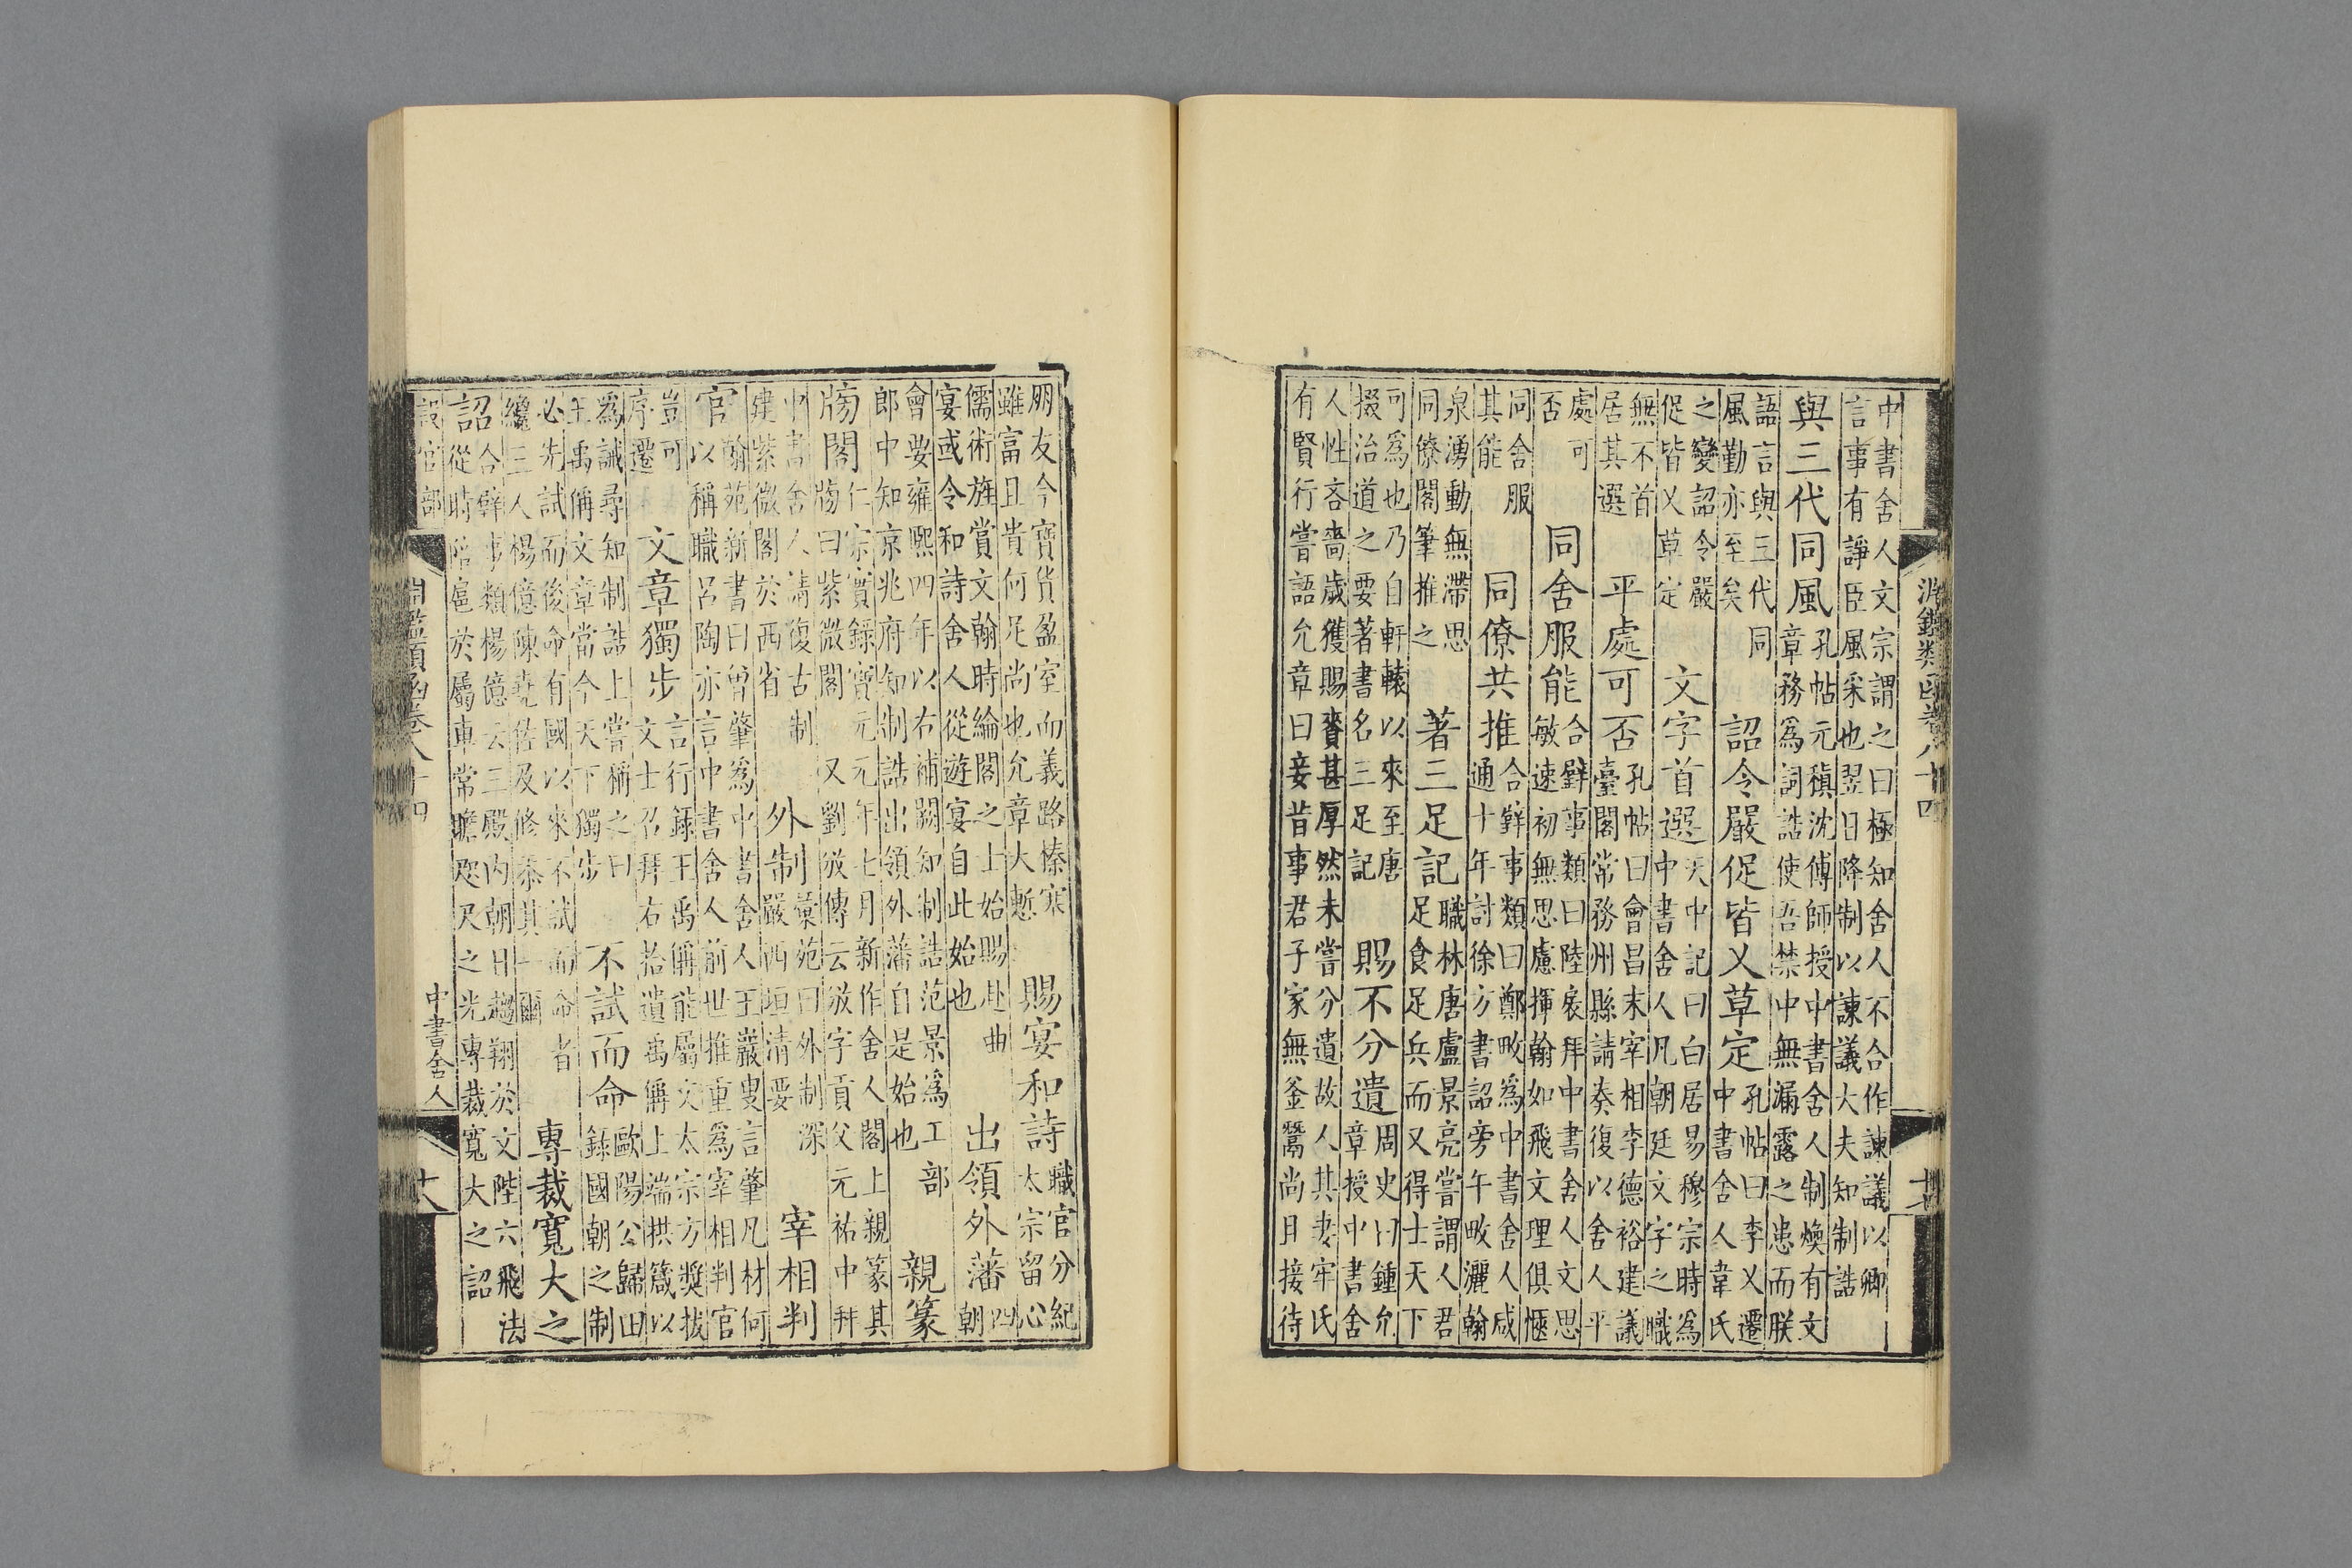 中書舍人文宗謂之曰極知舍人不合作諫議以卿
言事有諍臣風采也翌日降制以諫議大夫知制誥
與三代同風孔帖元稹沈傅師授中書舍人制煥有文
章務爲詞誥使吾禁中無漏露之患而朕
語言與三代同
風勤亦至矣
詔令嚴促皆乂草定孔帖曰李乂遷
中書舍人韋氏
之變詔令嚴
促皆乂草定
文字首選天中記曰白居易穆宗時爲
中書舍人凡朝廷文字之職
無不首
居其選
平處可否孔帖曰會昌末宰相李德裕建議
臺閣常務州縣請奏復以舍人平
處可
否
同舍服能合璧事類曰陸扆拜中書舍人文思
敏速初無思慮揮翰如飛文理俱愜
同舍服
其能
同僚共推合璧事類曰鄭畋爲中書舍人咸
通十年討徐方書詔旁午畋灑翰
泉湧動無滯思
同僚閣筆推之
著三足記職林唐盧景亮嘗謂人君
足食足兵而又得士天下
可爲也乃自軒轅以來至唐
掇治道之要著書名三足記
賜不分遺周史曰鍾允
章授中書舍
人性吝嗇歲獲賜賚甚厚然未嘗分遺故人其妻牢氏
有賢行嘗語允章曰妾昔事君子家無釜鬵尚且接待
淵鑑類函卷八十四
朋友今寶貨盈室而義路榛塞
雖富且貴何足尚也允章大慙
賜宴和詩職官分紀
太宗留心
儒術旌賞文翰時綸閣之上始賜赴曲
宴或令和詩舍人從遊宴自此始也
出領外藩四
朝
會要雍熙四年以右補闕知制誥范景爲工部
郎中知京兆府知制誥出領外藩自是始也
親篆
牓閣仁宗實錄寳元元年七月新作舍人閣上親篆其
牓曰紫微閣又劉攽傳云攽字貢父元祐中拜
中書舍人請復古制
建紫微閣於西省
外制彙苑曰外制深
嚴西垣清要
宰相判
官翰苑新書曰曾肇爲中書舍人王巖叟言肇凡材何
以稱職呂陶亦言中書舍人前世推重爲宰相判官
豈可
序遷
文章獨步言行錄王禹偁能屬文太宗方奬拔
文士召拜右拾遺禹偁上端拱箴以
爲誡尋知制誥上嘗稱之曰
王禹偁文章當今天下獨步
不試而命歐陽公歸田
錄國朝之制
必先試而後命有國以來不試而命者
纔三人楊億陳堯佐及修忝其一爾
專裁寬大之
詔合璧事類楊億云三殿内朝日趨翔於文陛六飛法
從時陪扈於屬車常瞻咫尺之光專裁寬大之詔
設官部
淵鑑類函卷八十四
中書舍人